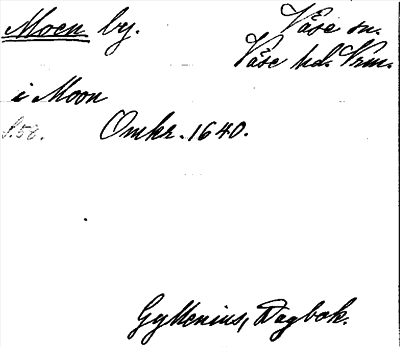 Moen by. Väse sn.
Väse hd. Vrm.
i Moon
s. 58. Omkr. 1640.
Gyllenius, Dagbok.